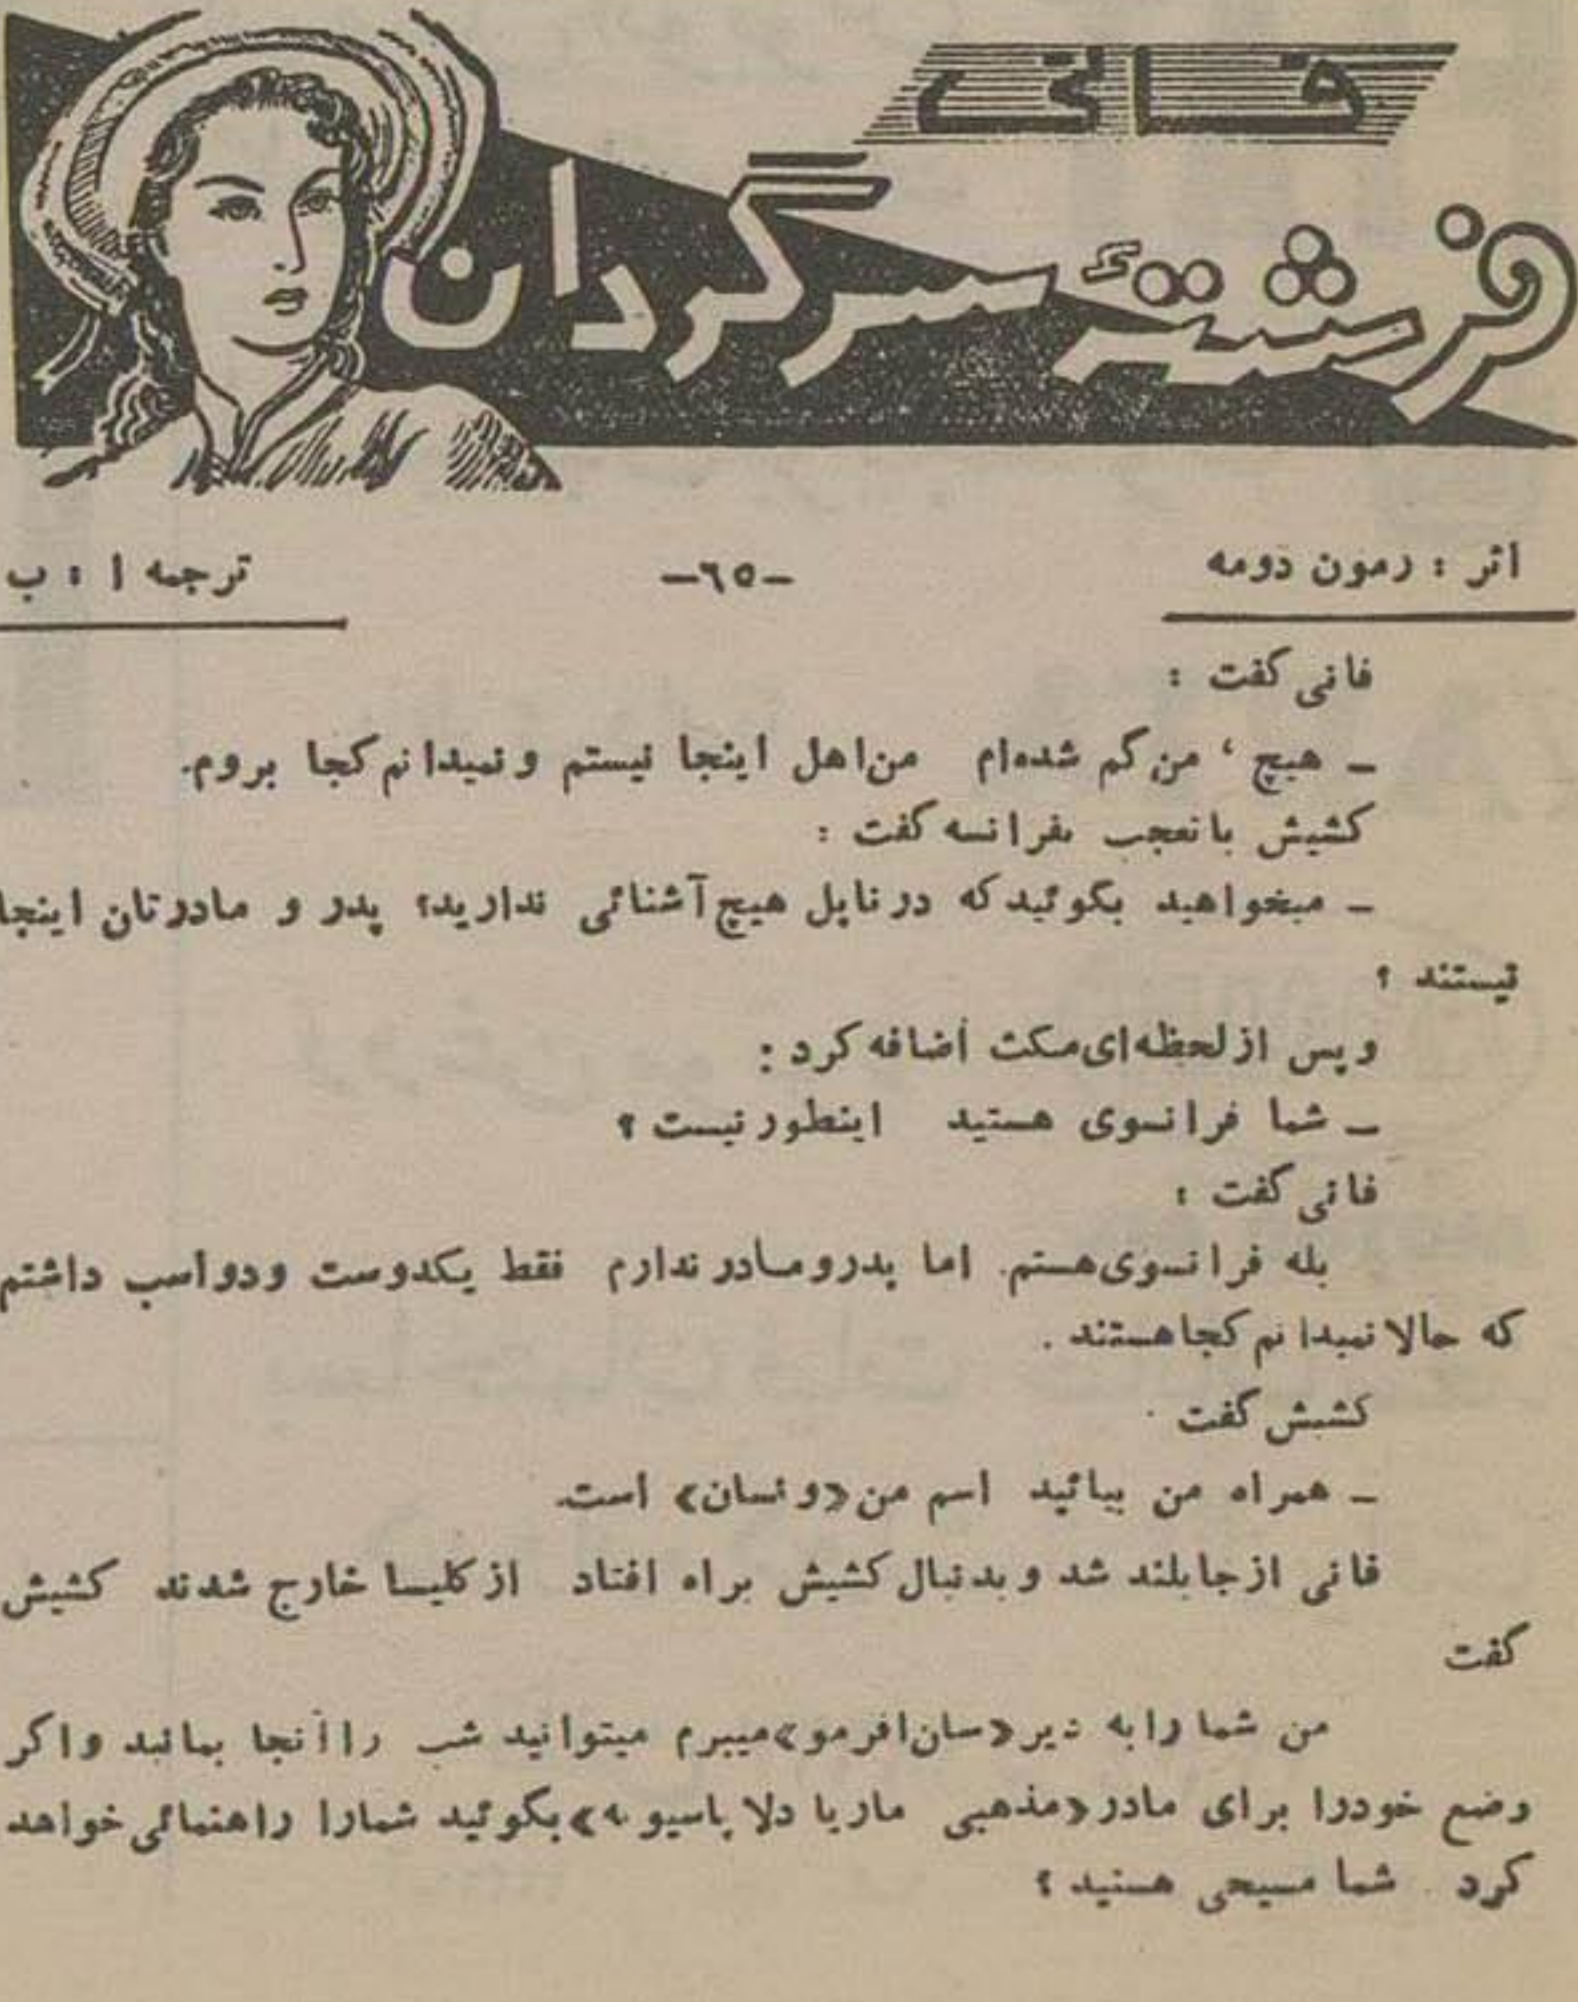 فانی
فرشتهٔ سرگردان
اثر : رمون دومه
-٦٥-
ترجمه ا : ب
فانی گفت :
ـ هیچ ، من گم شده‌ام من اهل اینجا نیستم و نمیدانم کجا بروم.
کشیش با تعجب بفرانسه گفت :
ـ میخواهید بگوئید که در ناپل هیچ آشنائی ندارید؟ پدر و مادرتان اینجا
نیستند ؟
و پس از لحظه‌ای مکث اضافه کرد :
ـ شما فرانسوی هستید اینطور نیست ؟
فانی گفت :
بله فرانسوی هستم. اما پدر و مادر ندارم فقط یکدوست و دو اسب داشتم
که حالا نمیدانم کجا هستند .
کشیش گفت .
ـ همراه من بیائید اسم من «ونسان» است.
فانی از جا بلند شد و بدنبال کشیش براه افتاد از کلیسا خارج شدند کشیش
گفت
من شما را به دیر «سان‌افرمو» میبرم میتوانید شب را آنجا بمانید و اگر
وضع خودرا برای مادر «مذهبی ماریا دلا پاسیونه» بگوئید شمارا راهنمائی خواهد
کرد . شما مسیحی هستید ؟